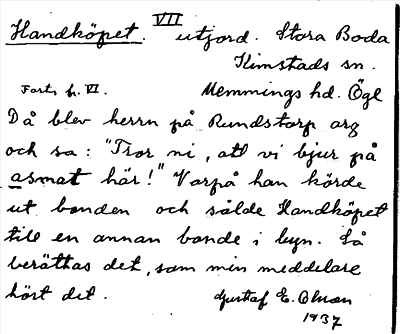 VII
Handköpet. utjord. Stora Boda
Kimstads sn.
Forts. fr. VI. Memmings hd. Ögl
Då blev herrn på Rundstorp arg
och sa: "Tror ni, att vi bjur på
asmat här!" Varpå han körde
ut bonden och sålde Handköpet
till en annan bonde i byn. Så
berättas det, som min meddelare
hört det. Gustaf E. Olsson
1937